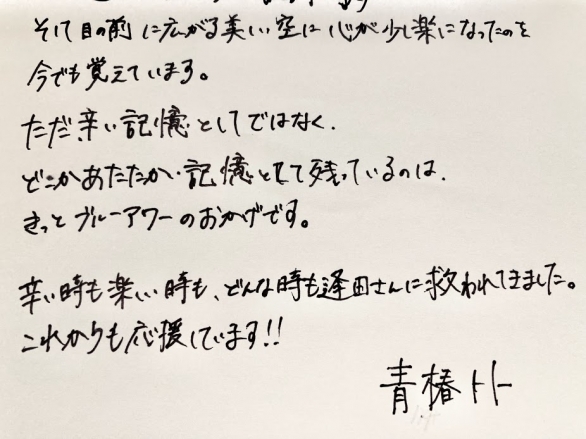 そして目の前に広がる美しい空に心が少し楽になったのを
今でも覚えています。
ただ辛い記憶としてではなく、
どこかあたたかい記憶として残っているのは、
きっとブルーアワーのおかげです。
辛い時も楽しい時も、どんな時も逢田さんに救われてきました。
これからも応援しています!!
青椿トト